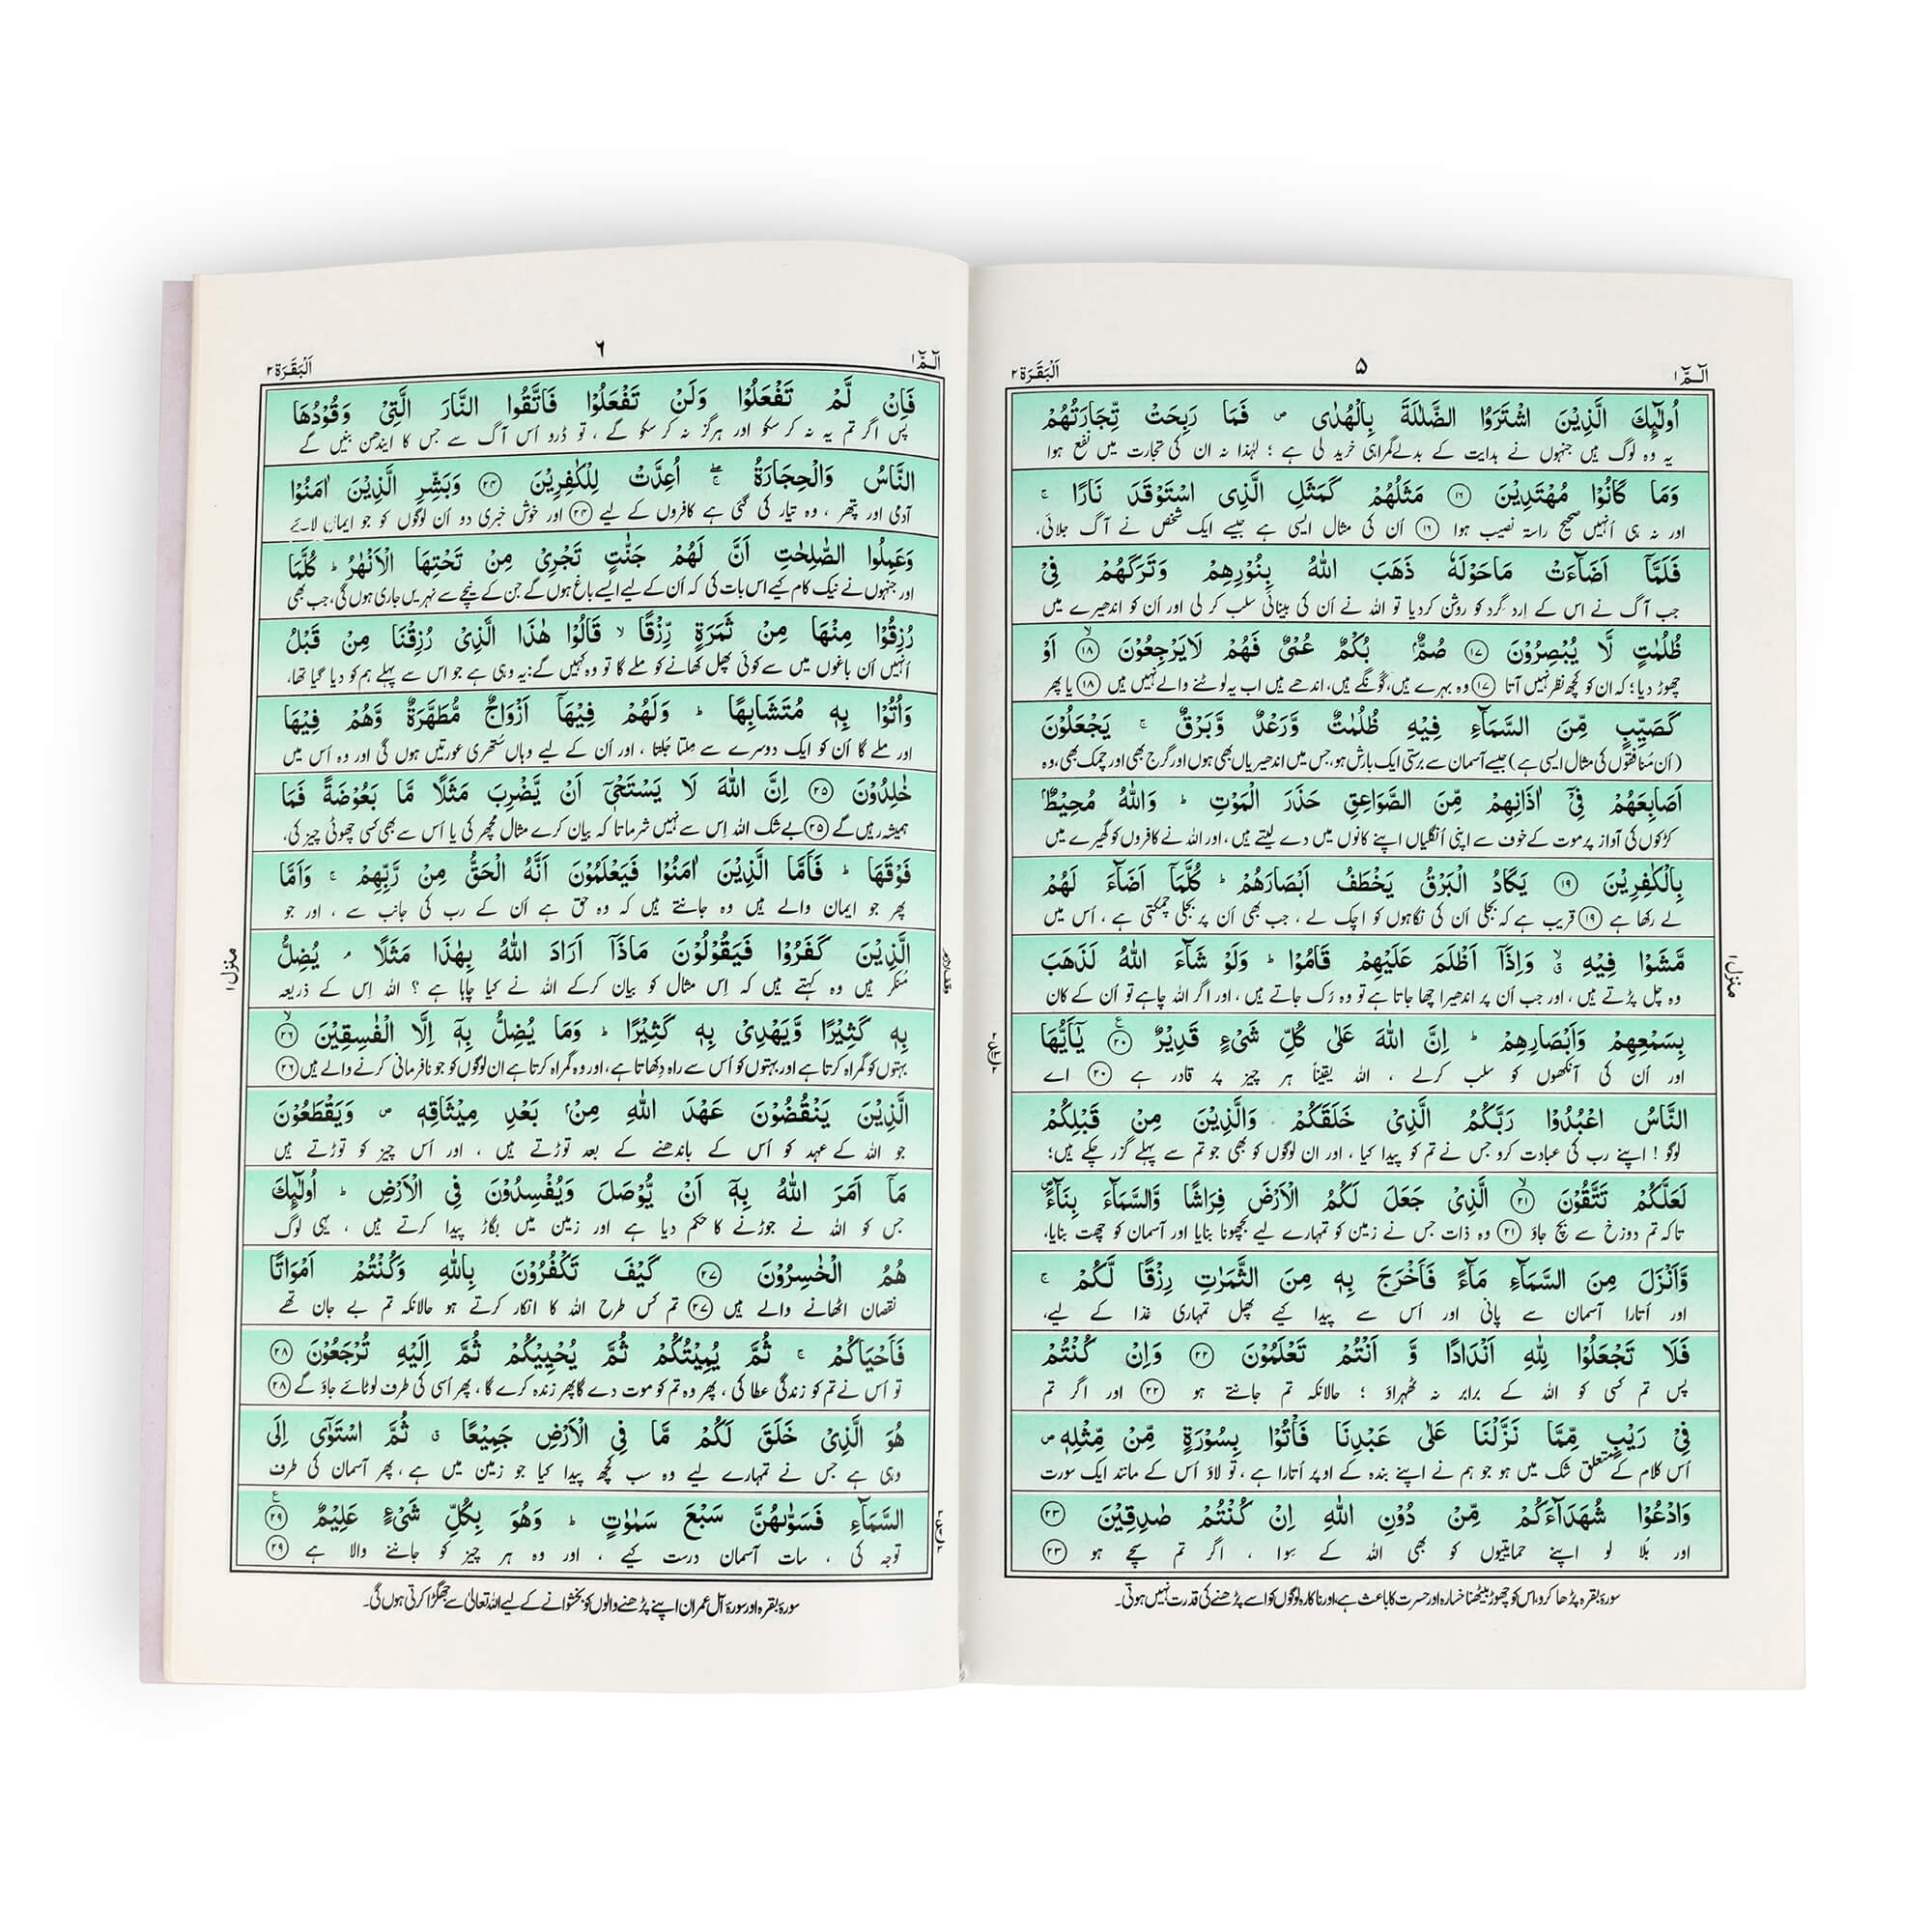 الٓمّٓ ١
۵
اَلْبَقَرَة ٢
اُولٰٓئِكَ الَّذِيْنَ اشْتَرَوُا الضَّلٰلَةَ بِالْهُدٰى ص فَمَا رَبِحَتْ تِّجَارَتُهُمْ
یہ وہ لوگ ہیں جنہوں نے ہدایت کے بدلے گمراہی خرید لی ہے ؛ لہٰذا نہ ان کی تجارت میں نفع ہوا
وَمَا كَانُوْا مُهْتَدِيْنَ ١٦ مَثَلُهُمْ كَمَثَلِ الَّذِى اسْتَوْقَدَ نَارًا ج
اور نہ ہی اُنہیں صحیح راستہ نصیب ہوا ١٦ اُن کی مثال ایسی ہے جیسے ایک شخص نے آگ جلائی،
فَلَمَّآ اَضَآءَتْ مَاحَوْلَهٗ ذَهَبَ اللّٰهُ بِنُوْرِهِمْ وَتَرَكَهُمْ فِيْ
جب آگ نے اس کے اِرد گِرد کو روشن کردیا تو اللہ نے اُن کی بینائی سلب کر لی اور اُن کو اندھیرے میں
ظُلُمٰتٍ لَّا يُبْصِرُوْنَ ١٧ صُمٌّۢ بُكْمٌ عُمْيٌ فَهُمْ لَايَرْجِعُوْنَ ١٨ اَوْ
چھوڑ دیا؛ کہ ان کو کچھ نظر نہیں آتا ١٧ وہ بہرے ہیں، گونگے ہیں، اندھے ہیں اب یہ لوٹنے والے نہیں ہیں ١٨ یا پھر
كَصَيِّبٍ مِّنَ السَّمَآءِ فِيْهِ ظُلُمٰتٌ وَّرَعْدٌ وَّبَرْقٌ ج يَجْعَلُوْنَ
( اُن مُنافقوں کی مثال ایسی ہے ) جیسے آسمان سے برستی ایک بارش ہو، جس میں اندھیریاں بھی ہوں اور گرج بھی اور چمک بھی، وہ
اَصَابِعَهُمْ فِيْٓ اٰذَانِهِمْ مِّنَ الصَّوَاعِقِ حَذَرَ الْمَوْتِ ط وَاللّٰهُ مُحِيْطٌۢ
کڑکوں کی آواز پر موت کے خوف سے اپنی اُنگلیاں اپنے کانوں میں دے لیتے ہیں ، اور اللہ نے کافروں کو گھیرے میں
بِالْكٰفِرِيْنَ ١٩ يَكَادُ الْبَرْقُ يَخْطَفُ اَبْصَارَهُمْ ط كُلَّمَآ اَضَآءَ لَهُمْ
لے رکھا ہے ١٩ قریب ہے کہ بجلی اُن کی نگاہوں کو اچک لے ، جب بھی اُن پر بجلی چمکتی ہے ، اُس میں
مَّشَوْا فِيْهِ ق وَاِذَآ اَظْلَمَ عَلَيْهِمْ قَامُوْا ط وَلَوْ شَآءَ اللّٰهُ لَذَهَبَ
وہ چل پڑتے ہیں ، اور جب اُن پر اندھیرا چھا جاتا ہے تو وہ رُک جاتے ہیں ، اور اگر اللہ چاہے تو اُن کے کان
بِسَمْعِهِمْ وَاَبْصَارِهِمْ ط اِنَّ اللّٰهَ عَلٰى كُلِّ شَيْءٍ قَدِيْرٌ ٢٠ يٰٓاَيُّهَا
اور اُن کی آنکھوں کو سلب کرلے ، اللہ یقیناً ہر چیز پر قادر ہے ٢٠ اے
النَّاسُ اعْبُدُوْا رَبَّكُمُ الَّذِيْ خَلَقَكُمْ وَالَّذِيْنَ مِنْ قَبْلِكُمْ
لوگو ! اپنے رب کی عبادت کرو جس نے تم کو پیدا کیا ، اور ان لوگوں کو بھی جو تم سے پہلے گزر چکے ہیں؛
لَعَلَّكُمْ تَتَّقُوْنَ ٢١ الَّذِيْ جَعَلَ لَكُمُ الْاَرْضَ فِرَاشًا وَّالسَّمَآءَ بِنَآءً ص
تاکہ تم دوزخ سے بچ جاؤ ٢١ وہ ذات جس نے زمین کو تمہارے لیے بچھونا بنایا اور آسمان کو چھت بنایا،
وَّاَنْزَلَ مِنَ السَّمَآءِ مَآءً فَاَخْرَجَ بِهٖ مِنَ الثَّمَرٰتِ رِزْقًا لَّكُمْ ج
اور اُتارا آسمان سے پانی اور اُس سے پیدا کیے پھل تمہاری غذا کے لیے،
فَلَا تَجْعَلُوْا لِلّٰهِ اَنْدَادًا وَّ اَنْتُمْ تَعْلَمُوْنَ ٢٢ وَاِنْ كُنْتُمْ
پس تم کسی کو اللہ کے برابر نہ ٹھہراؤ ؛ حالانکہ تم جانتے ہو ٢٢ اور اگر تم
فِيْ رَيْبٍ مِّمَّا نَزَّلْنَا عَلٰى عَبْدِنَا فَاْتُوْا بِسُوْرَةٍ مِّنْ مِّثْلِهٖ ص
اُس کلام کے متعلق شک میں ہو جو ہم نے اپنے بندہ کے اوپر اُتارا ہے ، تو لاؤ اُس کے مانند ایک سورت
وَادْعُوْا شُهَدَآءَكُمْ مِّنْ دُوْنِ اللّٰهِ اِنْ كُنْتُمْ صٰدِقِيْنَ ٢٣
اور بُلا لو اپنے حمایتیوں کو بھی اللہ کے سِوا ، اگر تم سچے ہو ٢٣
سورۂ بقرہ پڑھا کرو، اس کو چھوڑ بیٹھنا خسارہ اور حسرت کا باعث ہے، اور ناکارہ لوگوں کو اسے پڑھنے کی قدرت نہیں ہوتی۔
منزل ١
الٓمّٓ ١
٦
اَلْبَقَرَة ٢
فَاِنْ لَّمْ تَفْعَلُوْا وَلَنْ تَفْعَلُوْا فَاتَّقُوا النَّارَ الَّتِيْ وَقُوْدُهَا
پس اگر تم یہ نہ کر سکو اور ہرگز نہ کر سکو گے ، تو ڈرو اُس آگ سے جس کا ایندھن بنیں گے
النَّاسُ وَالْحِجَارَةُ ج اُعِدَّتْ لِلْكٰفِرِيْنَ ٢٤ وَبَشِّرِ الَّذِيْنَ اٰمَنُوْا
آدمی اور پتھر ، وہ تیار کی گئی ہے کافروں کے لیے ٢٤ اور خوش خبری دو اُن لوگوں کو جو ایمان لائے
وَعَمِلُوا الصّٰلِحٰتِ اَنَّ لَهُمْ جَنّٰتٍ تَجْرِيْ مِنْ تَحْتِهَا الْاَنْهٰرُ ط كُلَّمَا
اور جنہوں نے نیک کام کیے اس بات کی کہ اُن کے لیے ایسے باغ ہوں گے جن کے نیچے سے نہریں جاری ہوں گی، جب بھی
رُزِقُوْا مِنْهَا مِنْ ثَمَرَةٍ رِّزْقًا لا قَالُوْا هٰذَا الَّذِيْ رُزِقْنَا مِنْ قَبْلُ
اُنہیں اُن باغوں میں سے کوئی پھل کھانے کو ملے گا تو وہ کہیں گے: یہ وہی ہے جو اس سے پہلے ہم کو دیا گیا تھا،
وَاُتُوْا بِهٖ مُتَشَابِهًا ط وَلَهُمْ فِيْهَآ اَزْوَاجٌ مُّطَهَّرَةٌ وَّهُمْ فِيْهَا
اور ملے گا اُن کو ایک دوسرے سے مِلتا جُلتا ، اور اُن کے لیے وہاں ستھری عورتیں ہوں گی اور وہ اُس میں
خٰلِدُوْنَ ٢٥ اِنَّ اللّٰهَ لَا يَسْتَحْيٖٓ اَنْ يَّضْرِبَ مَثَلًا مَّا بَعُوْضَةً فَمَا
ہمیشہ رہیں گے ٢٥ بے شک اللہ اِس سے نہیں شرماتا کہ بیان کرے مثال مچھر کی یا اُس سے بھی کسی چھوٹی چیز کی.
فَوْقَهَا ط فَاَمَّا الَّذِيْنَ اٰمَنُوْا فَيَعْلَمُوْنَ اَنَّهُ الْحَقُّ مِنْ رَّبِّهِمْ ج وَاَمَّا
پھر جو ایمان والے ہیں وہ جانتے ہیں کہ وہ حق ہے اُن کے رب کی جانب سے ، اور جو
الَّذِيْنَ كَفَرُوْا فَيَقُوْلُوْنَ مَاذَآ اَرَادَ اللّٰهُ بِهٰذَا مَثَلًا م يُضِلُّ
مُنکر ہیں وہ کہتے ہیں کہ اِس مثال کو بیان کرکے اللہ نے کیا چاہا ہے ؟ اللہ اِس کے ذریعہ
بِهٖ كَثِيْرًا وَّيَهْدِيْ بِهٖ كَثِيْرًا ط وَمَا يُضِلُّ بِهٖٓ اِلَّا الْفٰسِقِيْنَ ٢٦
بہتوں کو گمراہ کرتا ہے اور بہتوں کو اُس سے راہ دِکھاتا ہے، اور وہ گمراہ کرتا ہے ان لوگوں کو جو نافرمانی کرنے والے ہیں ٢٦
الَّذِيْنَ يَنْقُضُوْنَ عَهْدَ اللّٰهِ مِنْۢ بَعْدِ مِيْثَاقِهٖ ص وَيَقْطَعُوْنَ
جو اللہ کے عہد کو اُس کے باندھنے کے بعد توڑتے ہیں ، اور اُس چیز کو توڑتے ہیں
مَآ اَمَرَ اللّٰهُ بِهٖٓ اَنْ يُّوْصَلَ وَيُفْسِدُوْنَ فِي الْاَرْضِ ط اُولٰٓئِكَ
جس کو اللہ نے جوڑنے کا حکم دیا ہے اور زمین میں بگاڑ پیدا کرتے ہیں ، یہی لوگ
هُمُ الْخٰسِرُوْنَ ٢٧ كَيْفَ تَكْفُرُوْنَ بِاللّٰهِ وَكُنْتُمْ اَمْوَاتًا
نقصان اٹھانے والے ہیں ٢٧ تم کس طرح اللہ کا انکار کرتے ہو حالانکہ تم بے جان تھے
فَاَحْيَاكُمْ ج ثُمَّ يُمِيْتُكُمْ ثُمَّ يُحْيِيْكُمْ ثُمَّ اِلَيْهِ تُرْجَعُوْنَ ٢٨
تو اُس نے تم کو زندگی عطا کی ، پھر وہ تم کو موت دے گا پھر زندہ کرے گا ، پھر اُسی کی طرف لوٹائے جاؤ گے ٢٨
هُوَ الَّذِيْ خَلَقَ لَكُمْ مَّا فِي الْاَرْضِ جَمِيْعًا ق ثُمَّ اسْتَوٰٓى اِلَى
وہی ہے جس نے تمہارے لیے وہ سب کچھ پیدا کیا جو زمین میں ہے ، پھر آسمان کی طرف
السَّمَآءِ فَسَوّٰىهُنَّ سَبْعَ سَمٰوٰتٍ ط وَهُوَ بِكُلِّ شَيْءٍ عَلِيْمٌ ٢٩
توجہ کی ، سات آسمان درست کیے ، اور وہ ہر چیز کو جاننے والا ہے ٢٩
سورۂ بقرہ اور سورۂ آلِ عمران اپنے پڑھنے والوں کو بخشوانے کے لیے اللہ تعالیٰ سے جھگڑا کرتی ہوں گی۔
منزل ١